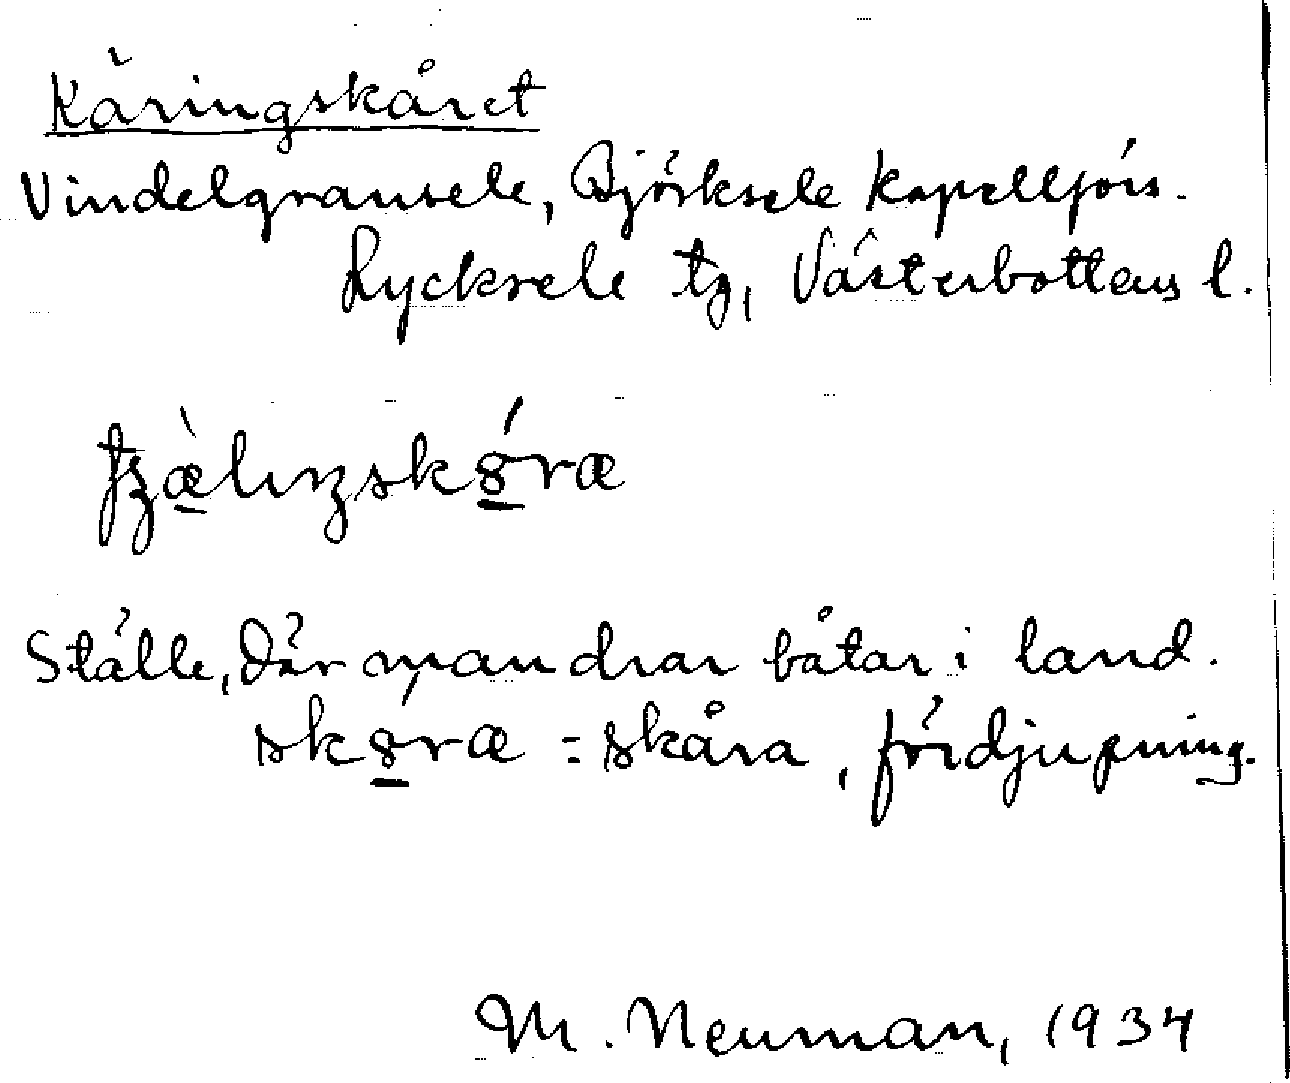 Käringskåret
Vindelgransele, Björksele kapellförs.
Lycksele tg, Västerbottens l.
Ställe, där man drar båtar i land.
= skåra, fördjupning.
M. Neuman, 1934